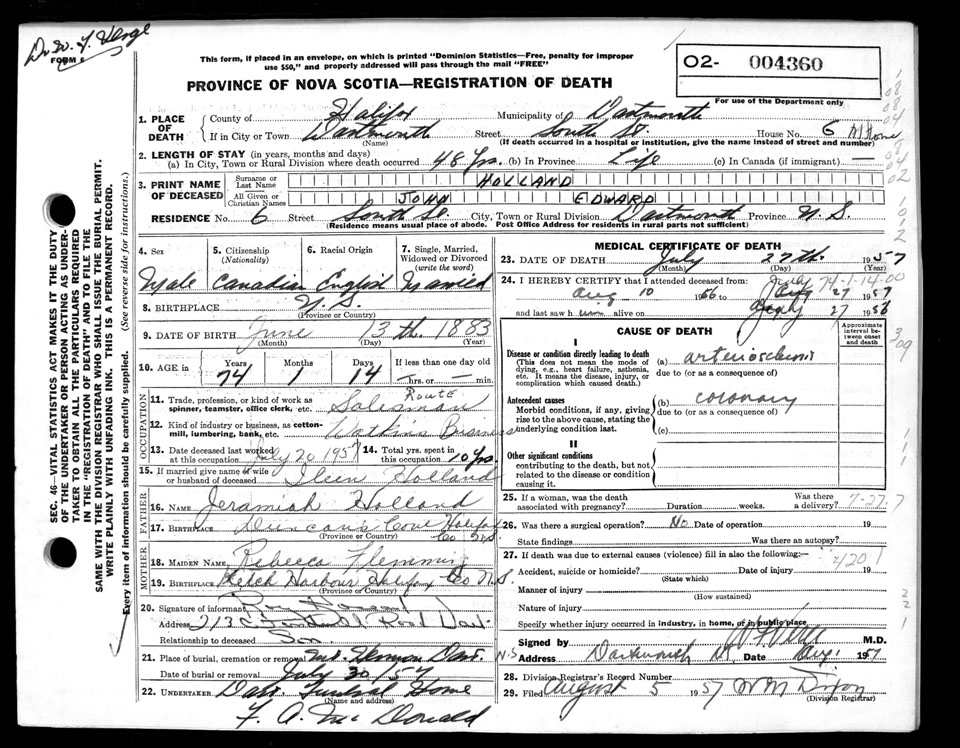 Dr. W. F. Verge
FORM 6
This form, if placed in an envelope, on which is printed "Dominion Statistics—Free, penalty for improper
use $50," and properly addressed will pass through the mail "FREE"
PROVINCE OF NOVA SCOTIA—REGISTRATION OF DEATH
02- 004360
For use of the Department only
1. PLACE OF DEATH County of Halifax Municipality of Dartmouth
If in City or Town Dartmouth Street South St. House No. 6 At Home
(Name) (If death occurred in a hospital or institution, give the name instead of street and number)
2. LENGTH OF STAY (in years, months and days)
(a) In City, Town or Rural Division where death occurred 48 Yrs. (b) In Province Life (c) In Canada (if immigrant) —
3. PRINT NAME OF DECEASED Surname or Last Name HOLLAND
All Given or Christian Names JOHN EDWARD
RESIDENCE No. 6 Street South St. City, Town or Rural Division Dartmouth Province N.S.
(Residence means usual place of abode. Post Office Address for residents in rural parts not sufficient)
SEC. 46—VITAL STATISTICS ACT MAKES IT THE DUTY
OF THE UNDERTAKER OR PERSON ACTING AS UNDER-
TAKER TO OBTAIN ALL THE PARTICULARS REQUIRED
IN THE "REGISTRATION OF DEATH" AND TO FILE THE
SAME WITH THE DIVISION REGISTRAR WHO SHALL ISSUE THE BURIAL PERMIT.
WRITE PLAINLY WITH UNFADING INK. THIS IS A PERMANENT RECORD.
Every item of information should be carefully supplied. (See reverse side for instructions.)
4. Sex 5. Citizenship (Nationality) 6. Racial Origin 7. Single, Married, Widowed or Divorced (write the word)
Male Canadian English Married
8. BIRTHPLACE N.S.
(Province or Country)
9. DATE OF BIRTH June 13th. 1883
(Month) (Day) (Year)
10. AGE in Years 74 Months 1 Days 14 If less than one day old — hrs. or — min.
OCCUPATION
11. Trade, profession or kind of work as spinner, teamster, office clerk, etc. Route Salesman
12. Kind of industry or business, as cotton-mill, lumbering, bank, etc. Watkins Business
13. Date deceased last worked at this occupation July 20 1957 14. Total yrs. spent in this occupation 10 Yrs.
15. If married give name of wife or husband of deceased Ileen Holland
FATHER
16. NAME Jeramiah Holland
17. BIRTHPLACE Duncan's Cove Halifax Co N.S.
(Province or Country)
MOTHER
18. MAIDEN NAME Rebecca Flemming
19. BIRTHPLACE Ketch Harbour Halifax Co N.S.
(Province or Country)
20. Signature of informant Roy
Address 213 Road Dart.
Relationship to deceased Son
21. Place of burial, cremation or removal Mt. Hermon Dart. N.S
Date of burial or removal July 30/57
22. UNDERTAKER Dart. Funeral Home
(Name and address)
F. A. McDonald
MEDICAL CERTIFICATE OF DEATH
23. DATE OF DEATH July 27th 1957
(Month) (Day) (Year)
74-1-14-00
24. I HEREBY CERTIFY that I attended deceased from:
Aug 10 1956 to July 27 1957
and last saw h alive on July 27 1956
CAUSE OF DEATH
Approximate interval between onset and death
I
Disease or condition directly leading to death
(This does not mean the mode of dying, e.g., heart failure, asthenia, etc. It means the disease, injury, or complication which caused death.)
(a) arteriosclerosis
due to (or as a consequence of)
Antecedent causes
Morbid conditions, if any, giving rise to the above cause, stating the underlying condition last.
(b) coronary
due to (or as a consequence of)
(c)
II
Other significant conditions
contributing to the death, but not related to the disease or condition causing it.
25. If a woman, was the death associated with pregnancy? Duration weeks. Was there a delivery? 7-27-7
26. Was there a surgical operation? No Date of operation 19
State findings Was there an autopsy?
27. If death was due to external causes (violence) fill in also the following:— 4201
Accident, suicide or homicide? Date of injury 19
(State which)
Manner of injury
(How sustained)
Nature of injury
Specify whether injury occurred in industry, in home, or in public place
Signed by M.D.
Address Dartmouth Date Aug 1 1957
28. Division Registrar's Record Number
29. Filed August 5 1957 W M Dixon
(Division Registrar)